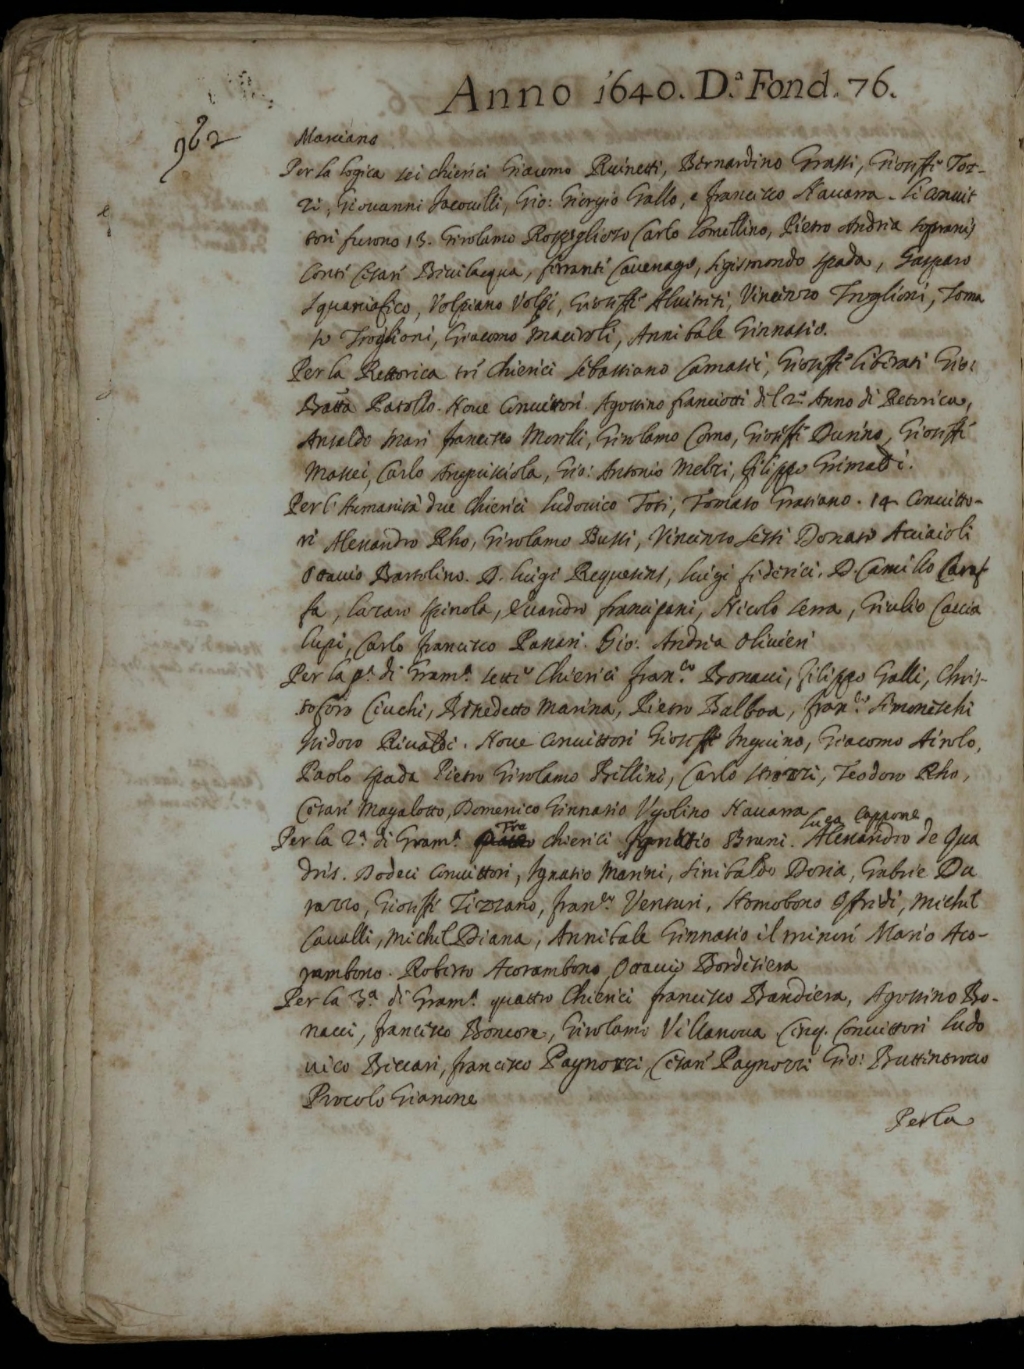 Anno 1640. D.ª Fond. 76.
962
Marciano
Per la logica sei chierici Giacomo Ruinetti, Bernardino Grassi, Gioseffe Toz-
zi, Giovanni Jacovilli, Gio: Giorgio Gallo, e francesco Navarra. li Convit
tori furono 13. Girolamo Rospigliozo Carlo Comellino, Pietro Andrea soprani,
Conte Cesare Bevilacqua, ferrante Cavenago, sigismondo spada, Gasparo
squarciafico, Volpiano Volpi, Gioseffe Alveteti, Vincenzo Troglioni, Toma
so Troglioni, Giacomo Maceroli, Annibale Ginnasio.
Per la Rettorica tre chierici sebastiano Camassei, Gioseffe liberati Gio:
Bratta Patollo. Nove Convittori Agostino franciotti del 2.º Anno di Retorica,
Ansaldo mari francesco Morelli, Girolamo Como, Gioseffe Durino, Gioseffe
Massei, Carlo Anguissiola, Gio: Antonio Melzi, filippo Grimaldi.
Per l'Humanità due chierici ludovico Toti, Tomaso Gratiano. 14. Convitto-
ri Alessandro Rho, Girolamo Bussi, Vincenzo sessi Donato Aciaioli
Ottavio Bartolino. D. luigi Requesens, luigi federici. D. Camillo Caraf
fa, lazaro spinola, Evandro francipani, Nicolo serra, Giulio Caccia
lupi, Carlo francesco Passari. Gio: Andrea Olivieri
Per la p.ª di Gram.ª sette Chierici fran.co Bonacci, filippo Galli, Chris-
toforo Ciuchi, Benedetto Marina, Pietro Balboa, fran.co simoneschi
Isidoro Rivaldi. Nove Convittori Gioseffe Inguino, Giacomo Airolo,
Paolo spada Pietro Girolamo Bellini, Carlo strozzi, Teodoro Rho,
Cesare Magalotto, Domenico Ginnasio Vgolino Navarra
luca Cappone
Per la 2.ª di Gram.ª Tre chierici Ignatio Bruni. Alessandro de Qua
dris. Dodeci Convittori, Ignatio Marini, sinibaldo Doria, Gabrie Du
razzo, Gioseffe Tizzano, fran.co Venturi, Homobono Offredi, Michel
Cavalli, Michel Diana, Annibale Ginnasio il minore Mario Aco-
rambono. Roberto Acorambono, Ottavio Bordisiera
Per la 3.ª di Gram.ª quattro Chierici francesco Bandiera, Agostino Bo-
nacci, francesco Boncore, Girolamo Villanova Cinq. Convittori ludo
vico Beccari, francesco Pagnozzi, Cesare Pagnozzi Gio:
Procolo Gianone
Per la